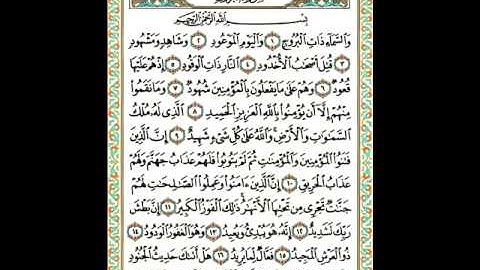 بِسْمِ اللَّهِ الرَّحْمَٰنِ الرَّحِيمِ
وَالسَّمَاءِ ذَاتِ الْبُرُوجِ ١ وَالْيَوْمِ الْمَوْعُودِ ٢ وَشَاهِدٍ وَمَشْهُودٍ
٣ قُتِلَ أَصْحَابُ الْأُخْدُودِ ٤ النَّارِ ذَاتِ الْوَقُودِ ٥ إِذْ هُمْ عَلَيْهَا
قُعُودٌ ٦ وَهُمْ عَلَىٰ مَا يَفْعَلُونَ بِالْمُؤْمِنِينَ شُهُودٌ ٧ وَمَا نَقَمُوا
مِنْهُمْ إِلَّا أَن يُؤْمِنُوا بِاللَّهِ الْعَزِيزِ الْحَمِيدِ ٨ الَّذِي لَهُ مُلْكُ
السَّمَاوَاتِ وَالْأَرْضِ وَاللَّهُ عَلَىٰ كُلِّ شَيْءٍ شَهِيدٌ ٩ إِنَّ الَّذِينَ
فَتَنُوا الْمُؤْمِنِينَ وَالْمُؤْمِنَاتِ ثُمَّ لَمْ يَتُوبُوا فَلَهُمْ عَذَابُ جَهَنَّمَ وَلَهُمْ
عَذَابُ الْحَرِيقِ ١٠ إِنَّ الَّذِينَ ءَامَنُوا وَعَمِلُوا الصَّالِحَاتِ لَهُمْ
جَنَّاتٌ تَجْرِي مِن تَحْتِهَا الْأَنْهَارُ ذَٰلِكَ الْفَوْزُ الْكَبِيرُ ١١ إِنَّ بَطْشَ
رَبِّكَ لَشَدِيدٌ ١٢ إِنَّهُ هُوَ يُبْدِئُ وَيُعِيدُ ١٣ وَهُوَ الْغَفُورُ الْوَدُودُ ١٤
ذُو الْعَرْشِ الْمَجِيدُ ١٥ فَعَّالٌ لِّمَا يُرِيدُ ١٦ هَلْ أَتَاكَ حَدِيثُ الْجُنُودِ